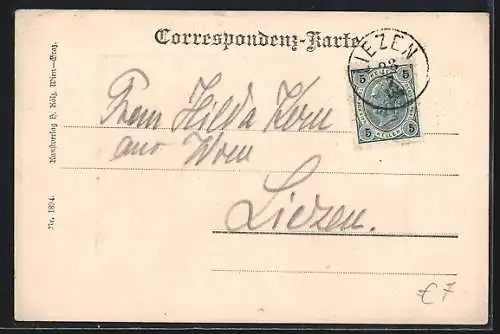 Correspondenz-Karte
LIEZEN
5 5
HELLER
5 5
Frau Hilda Kern
aus Wien
Liezen.
Kunstverlag H. Kölz, Wien—Graz.
Nr. 1894.
€ 7